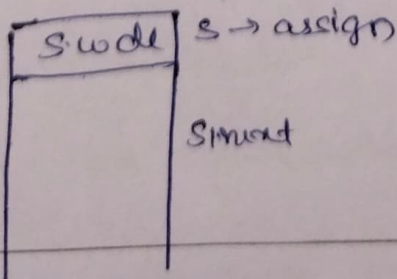 S.code S → assign
S.next